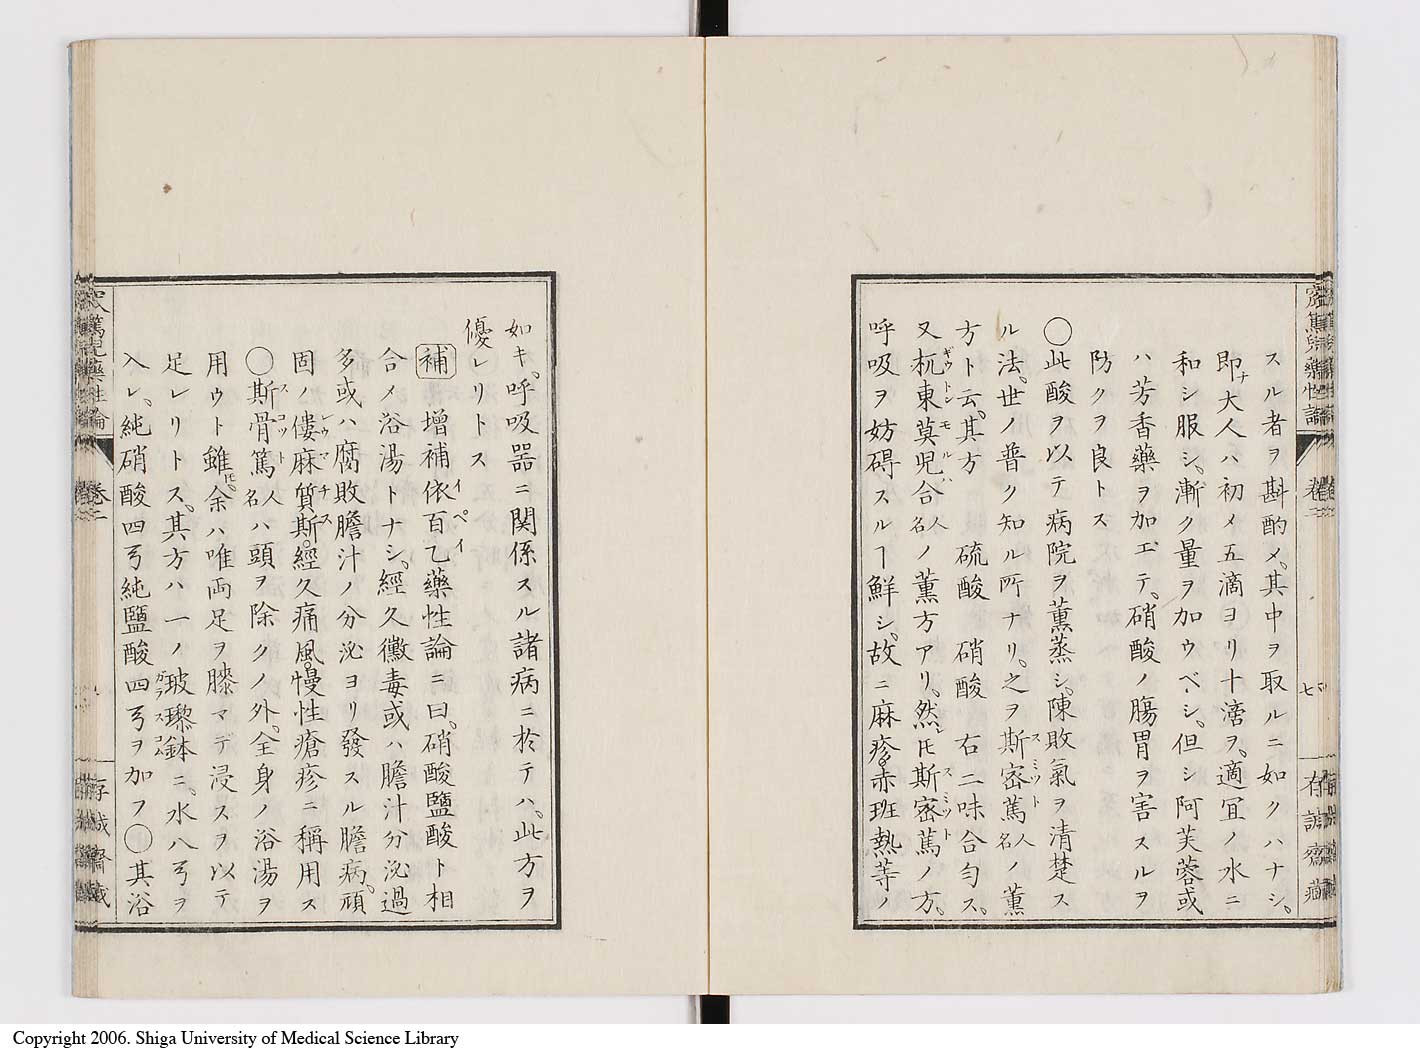 スル者ヲ斟酌メ、其中ヲ取ルニ如クハナシ。
即ナ大人ハ初メ五滴ヨリ十滴ヲ、適宜ノ水ニ
和シ服シ、漸ク量ヲ加ウベシ。但シ阿芙蓉或
ハ芳香藥ヲ加エテ、硝酸ノ腸胃ヲ害スルヲ
防クヲ良トス
〇此酸ヲ以テ病院ヲ薫蒸シ、陳敗氣ヲ清楚ス
ル法、世ノ普ク知ル所ナリ。之ヲ斯密篤スミット人名ノ薫
方ト云。其方　硫酸　硝酸　右二味合匀ス。
又杌東莫児合ギウトンモルハ人名ノ薫方アリ。然𪜈斯密篤スミットノ方。
呼吸ヲ妨碍スルヿ鮮シ。故ニ麻疹。赤斑熱等ノ
七
如キ、呼吸器ニ関係スル諸病ニ於テハ、此方ヲ
優レリトス
補 増補依百乙イペイ藥性論ニ曰。硝酸鹽酸ト相
合メ浴湯トナシ、經久黴毒或ハ膽汁分泌過
多或ハ腐敗膽汁ノ分泌ヨリ發スル膽病。頑
固ノ僂麻質斯レウマチス。經久痛風。慢性瘡疹ニ稱用ス
〇斯骨篤スコット人名ハ頭ヲ除クノ外、全身ノ浴湯ヲ
用ウト雖𪜈。余ハ唯両足ヲ膝マデ浸スヲ以テ
足レリトス。其方ハ一ノ玻瓈鉢ガラスコムニ、水八弓ヲ
入レ、純硝酸四弓純鹽酸四弓ヲ加フ〇其浴
卷二
Copyright 2006. Shiga University of Medical Science Library